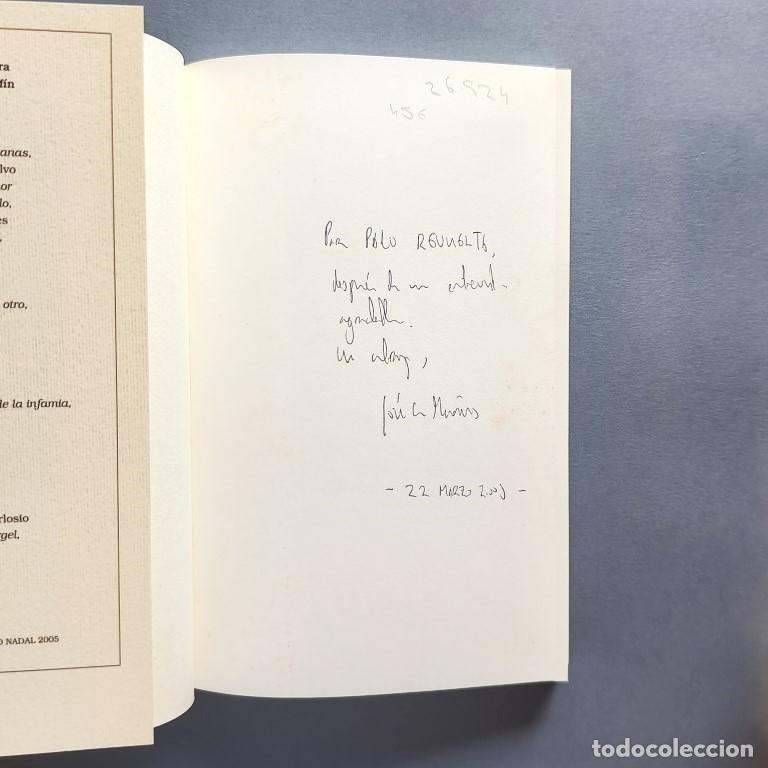 ra
fín
anas,
lvo
or
lo,
es
otro,
de la infamia,
rlosio
rgel,
O NADAL 2005
26.924
456
Para Polo REVUELTA,
después de un
agradable.
Un abrazo,
José
- 22 MARZO 2005 -
todocoleccion